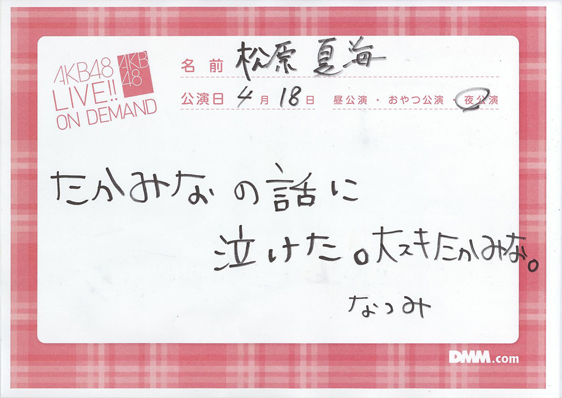 AKB48
LIVE!!
ON DEMAND
AKB
48
名前 松原夏海
公演日 4月18日 昼公演・おやつ公演・夜公演
たかみなの話に
泣けた。大スキたかみな。
なつみ
DMM.com